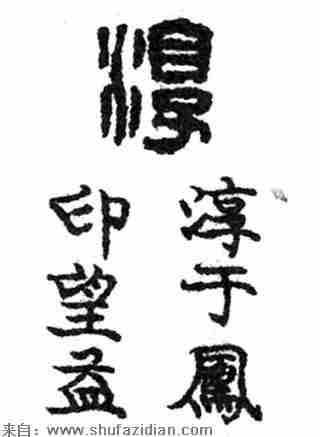 淳
淳于鳳
印望益
来自：www.shufazidian.com